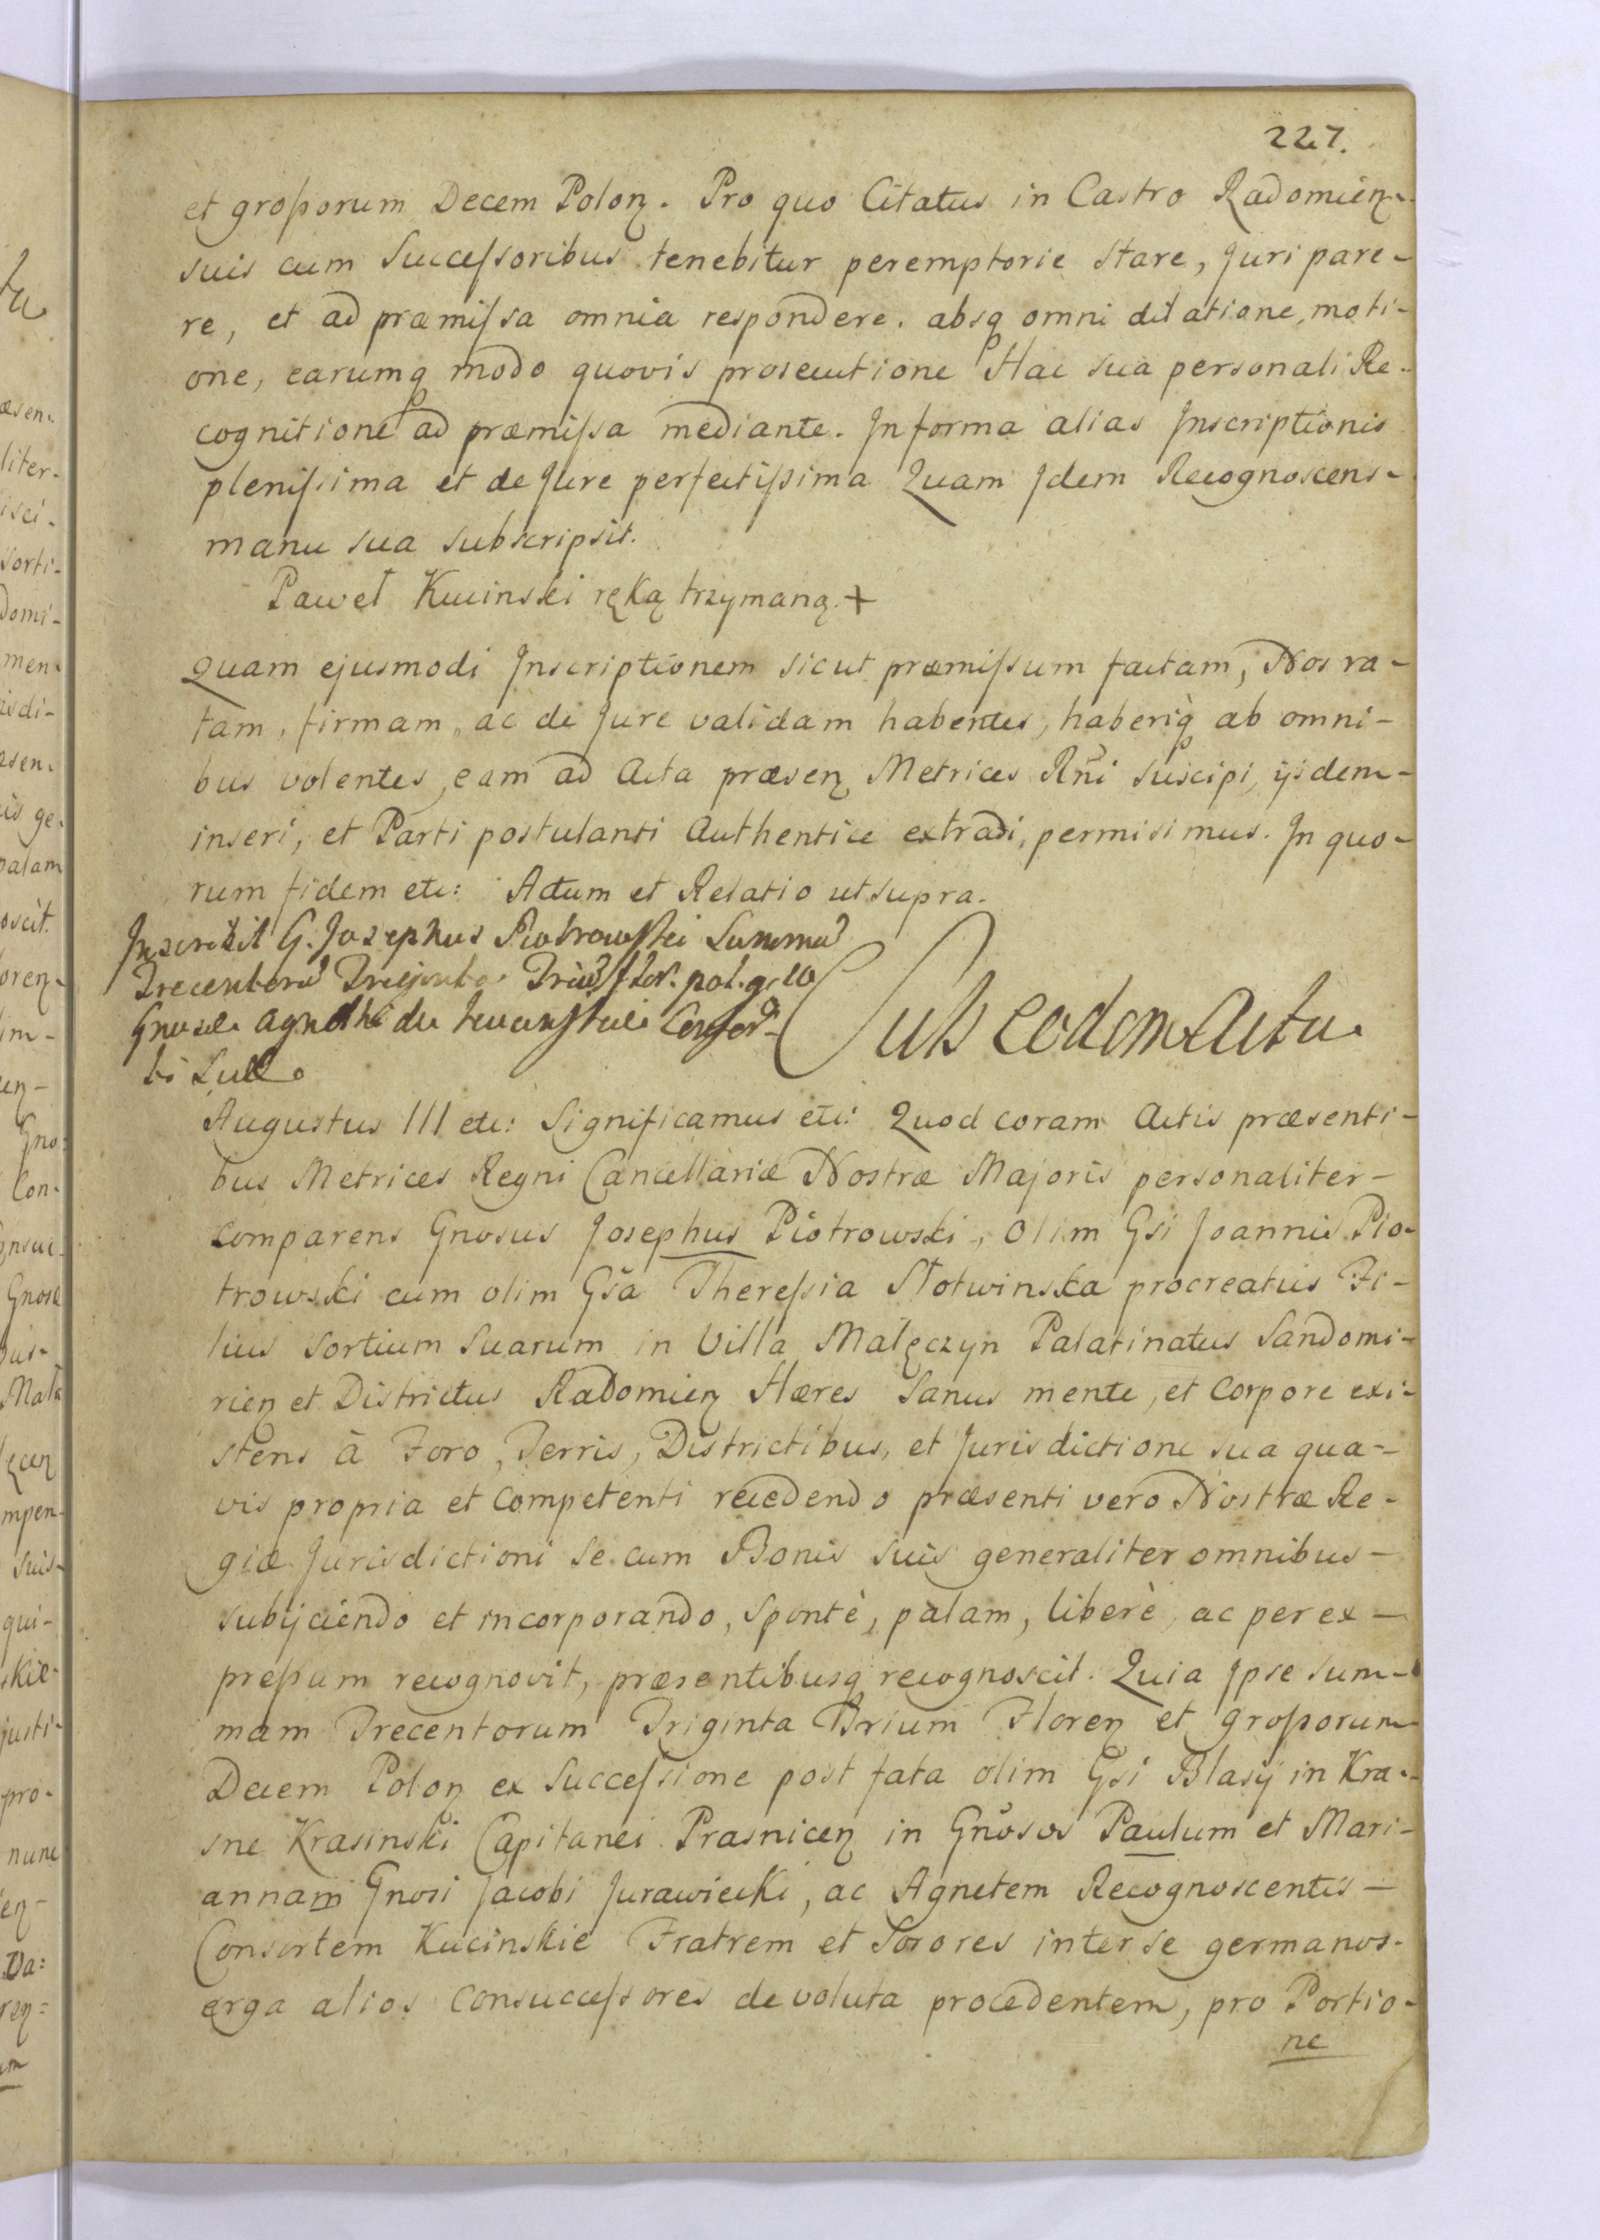 227.
et großorum Decem Polon. Pro quo Citatus in Castro Radomien-
suis cum Successoribus tenebitur peremptorie stare, Juri pare-
re, et ad præmissa omnia respondere. absq omni dilatione, moti-
one, earumq modo quovis prosecutione Hac sua personali Re-
cognitione ad præmissa mediante. In forma alias Inscriptionis
plenissima et de Jure perfectissima Quam Idem Recognoscens-
manu sua subscripsit.
Paweł Kucinski ręką trzymaną. +
Quam ejusmodi Inscriptionem sicut præmissum factam, Nos ra-
tam, firmam, ac de Jure validam habentes, haberiq ab omni-
bus volentes, eam ad Acta præsen Metrices Rni suscipi, ijsdem-
inseri, et Parti postulanti Authentice extradi, permisimus. In quo-
rum fidem etc: Actum et Relatio ut supra.
Inscribit G. Josephus Piotrowski Summa
Trecentoru Triginta Triu flor. pol. g. 10
Gnosæ Agnethi de Kucinskie Consor-
ti Suæ
Sub eodem Actu
Augustus III etc: Significamus etc: Quod coram Actis præsenti-
bus Metrices Regni Cancellariæ Nostræ Majoris personaliter-
comparens Gnosus Josephus Piotrowski, olim Gsi Joannis Pio-
trowski cum olim Gsa Theressia Słotwinska procreatus Fi-
lius Sortium Suarum in Villa Malęczyn Palatinatus Sandomi-
rien et Districtus Radomien Hæres Sanus mente, et Corpore exi-
stens à Foro, Terris, Districtibus, et Jurisdictione sua qua-
vis propria et Competenti recedendo præsenti vero Nostræ Re-
giæ Jurisdictioni se cum Bonis suis generaliter omnibus-
subijciendo et incorporando, spontè, palam, liberè ac per ex-
pressum recognovit, præsentibusq recognoscit. Quia Ipse sum-
mam Trecentorum Triginta Trium Floren et großorum
Decem Polon ex Successione post fata olim Gsi Blasij in Kra-
sne Krasinski Capitanei Prasnicen in Gnosos Paulum et Mari-
annam Gnosi Jacobi Jurawiecki, ac Agnetem Recognoscentis-
Consortem Kucinskie Fratrem et Sorores inter se germanos-
erga alios Consuccessores devoluta procedentem, pro Portio-
ne